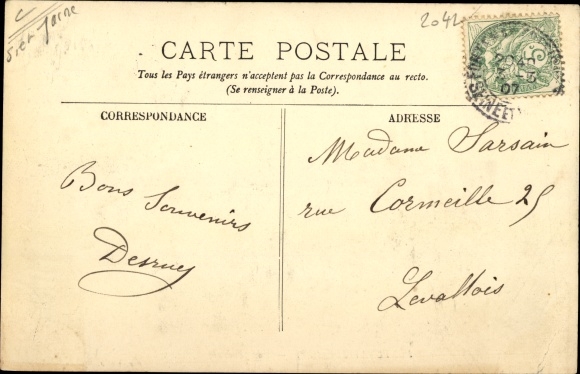 C
S. et Marne
2042
CARTE POSTALE
Tous les Pays étrangers n'acceptent pas la Correspondance au recto.
(Se renseigner à la Poste).
CORRESPONDANCE
ADRESSE
Bons Souvenirs
Madame Sarsain
rue Cormeille 25
Levallois
07